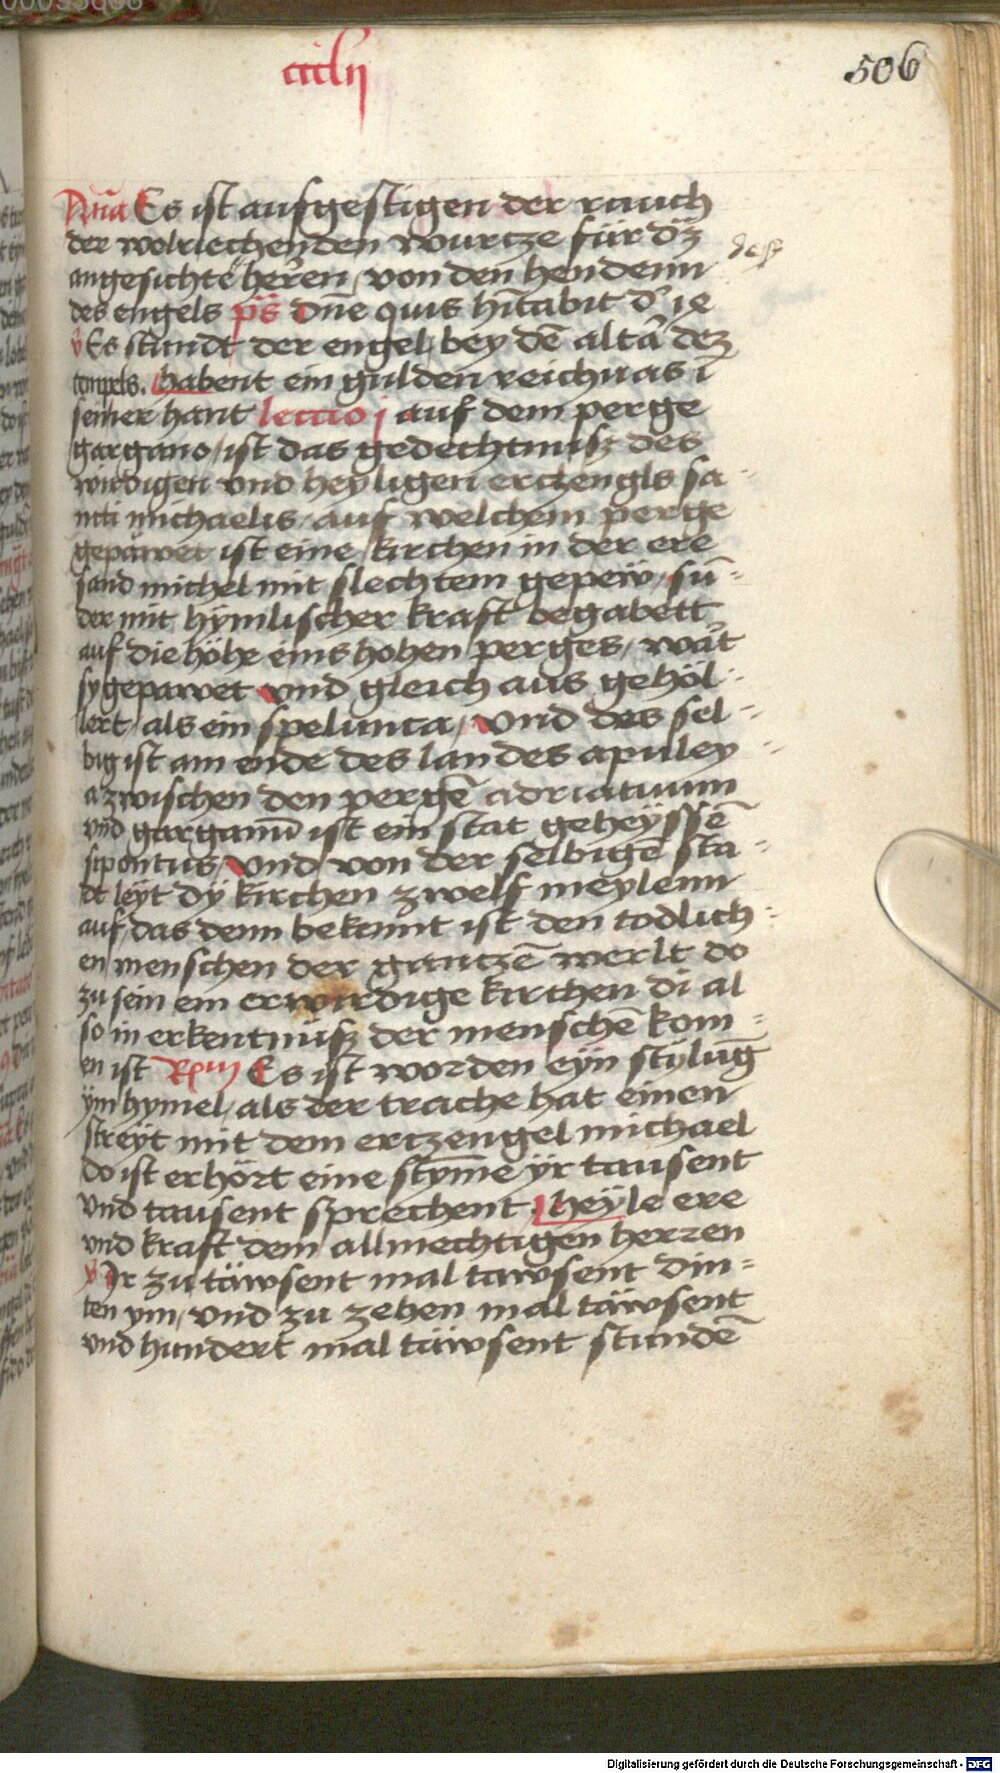 ccclij
506
An̄a Es ist aufgestigen der rauch
der wolriechenden wurcze für dz
angesichte herren von den hendenn
dess
des engels ps̄ Dn̄e quis hītabit
Es stundt der engel bey dē altar dez
tempels. habent ein gulden reichuas ī
seiner hant leccio j auf dem perge
gargano ist das gedechtnusz des
wirdigen vnd heyligen erczengls sa-
ncti michaelis auf welchem perge
gepawet ist eine kirchen in der ere
sand michel mit slechtem gepew sū-
der mit hymlischer kraft begabett
auf die höhe eins hohen perges wart
sy gepawet vnd gleich aus gehöl-
lert als ein spelunca Vnd des sel-
big ist am ende des landes apuley-
a zwischen den pergē adriaticum
vnd garganū ist ein stat geheyssē
sipontus Vnd von der selbige sta-
dt leyt dy kirchen zwelf meylenn
auf das denn bekannt ist den todlich-
en menschen der gantzē werlt do
zu sein ein erwirdige kirchen di al
so in erkentnusz der menschē kom-
en ist Rpm Es ist worden eyn stilūg
ym hymel als der trache hat einen
streyt mit dem erczengel michael
do ist erhört eine stȳme yr tausent
vnd tausent sprechent heyle ere
vnd kraft dem allmechtigen herren
Ir zu täwsent mal tawsent din-
ten ym vnd zu zehen mal täwsent
vnd hundert mal täwsent stundē
Digitalisierung gefördert durch die Deutsche Forschungsgemeinschaft - DFG